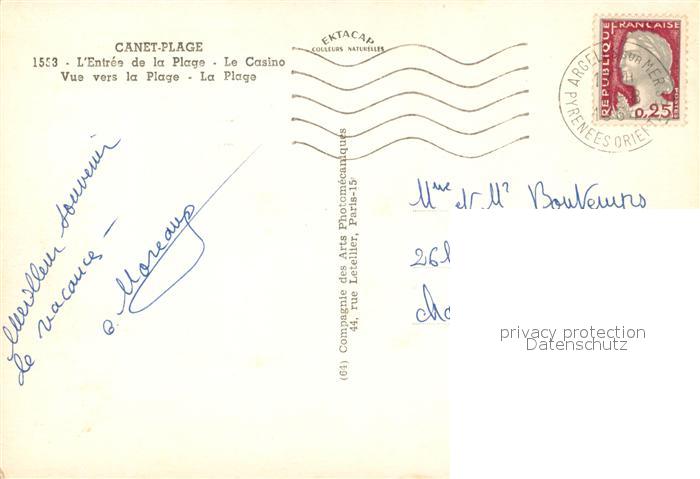 CANET-PLAGE
1553 - L'Entrée de la Plage - Le Casino
Vue vers la Plage - La Plage
EKTACAP
COULEURS NATURELLES
RÉPUBLIQUE FRANÇAISE
0,25
POSTES
ARGELES SUR MER
PYRENEES ORIENT
Meilleur souvenir
de vacances -
Moreau
(64) Compagnie des Arts Photomécaniques
44, rue Letellier, Paris-15
Mme et Mr
26
privacy protection
Datenschutz